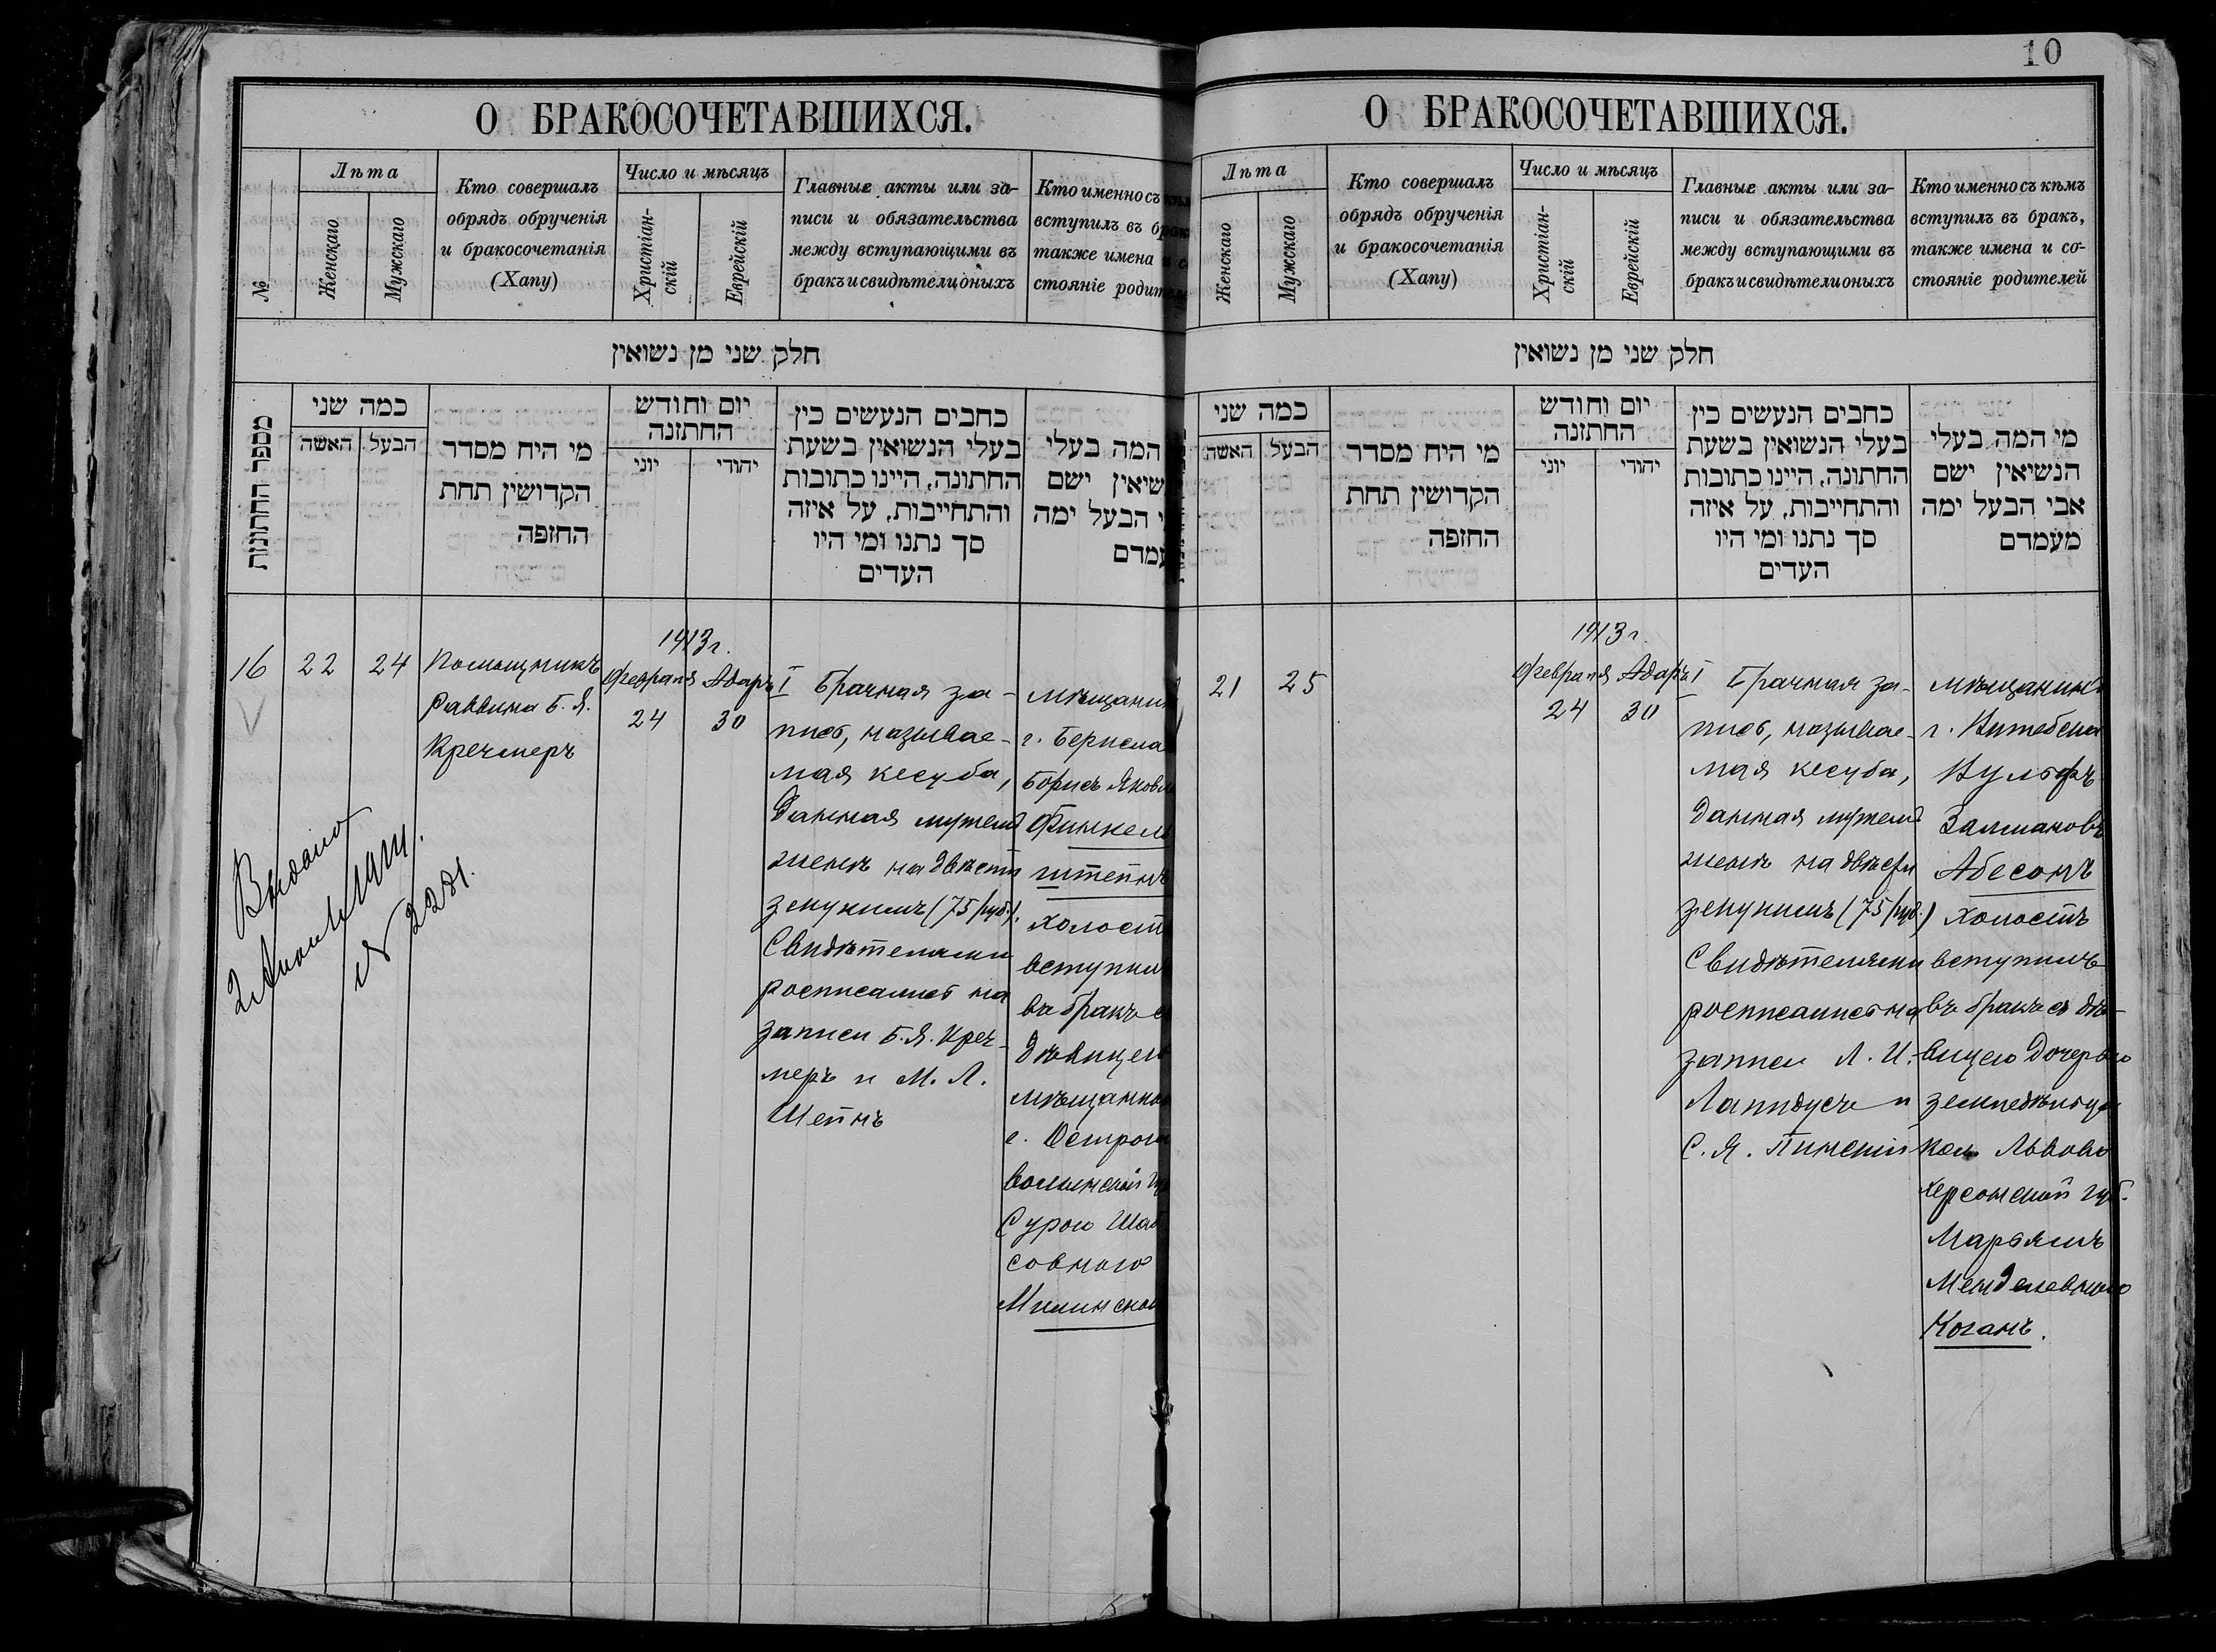 10
О БРАКОСОЧЕТАВШИХСЯ.
№
Лѣта
Женскаго
Мужскаго
Кто совершалъ
обрядъ обрученія
и бракосочетанія
(Хапу)
Число и мѣсяцъ
Христіан-
скій
Еврейскій
Главные акты или за-
писи и обязательства
между вступающими въ
бракъ и свидѣтели оныхъ
Кто именно съ
вступилъ въ
также имена
стояніе
חלק שני מן נשואין
מספר החתונות
כמה שני
האשה
הבעל
מי היח מסדר
הקדושין תחת
החופה
יום וחודש
החתונה
יוני
יהודי
כחבים הנעשים בין
בעלי הנשואין בשעת
החתונה, היינו כתובות
והתחייבות, על איזה
סך נתנו ומי היו
העדים
המה בעלי
ישם
הבעל ימה
16
22
24
Помощникъ
раввина Б. Я.
Кречмеръ
1913 г.
Февраля
24
Адаръ I
30
Брачная за-
пись, называе-
мая кесуба,
данная мужемъ
женѣ на двѣсти
зекукимъ (75 руб.).
Свидѣтелями
росписались на
записи Б. Я. Креч-
меръ и М. Л.
Штейнъ
мѣщанин
г. Берисла
Борисъ Яковл
Финкель
штейнъ
холост
вступил
въ бракъ с
дѣвицею
мѣщанко
г. Острога
Волынской
Сурою
совною
Выдано
№ 2281.
О БРАКОСОЧЕТАВШИХСЯ.
Лѣта
Женскаго
Мужскаго
Кто совершалъ
обрядъ обрученія
и бракосочетанія
(Хапу)
Число и мѣсяцъ
Христіан-
скій
Еврейскій
Главные акты или за-
писи и обязательства
между вступающими въ
бракъ и свидѣтели оныхъ
Кто именно съ кѣмъ
вступилъ въ бракъ,
также имена и со-
стояніе родителей
חלק שני מן נשואין
כמה שני
האשה
הבעל
מי היח מסדר
הקדושין תחת
החופה
יום וחודש
החתונה
יוני
יהודי
כחבים הנעשים בין
בעלי הנשואין בשעת
החתונה, היינו כתובות
והתחייבות, על איזה
סך נתנו ומי היו
העדים
מי המה בעלי
הנשיאין ישם
אבי הבעל ימה
מעמדם
21
25
1913 г.
Февраля
24
Адаръ I
30
Брачная за-
пись, называе-
мая кесуба,
данная мужемъ
женѣ на двѣсти
зекукимъ (75 руб.)
Свидѣтелями
росписались на
записи Л. И.
Лапидусъ и
С. Я.
мѣщанинъ
г. Витебска
Вульфъ
Залмановъ
Абесонъ
холостъ
вступилъ
въ бракъ съ дѣ-
вицею дочерью
земледѣльца
кол. Львово
Херсонской губ.
Марьямъ
Менделевною
Коганъ.